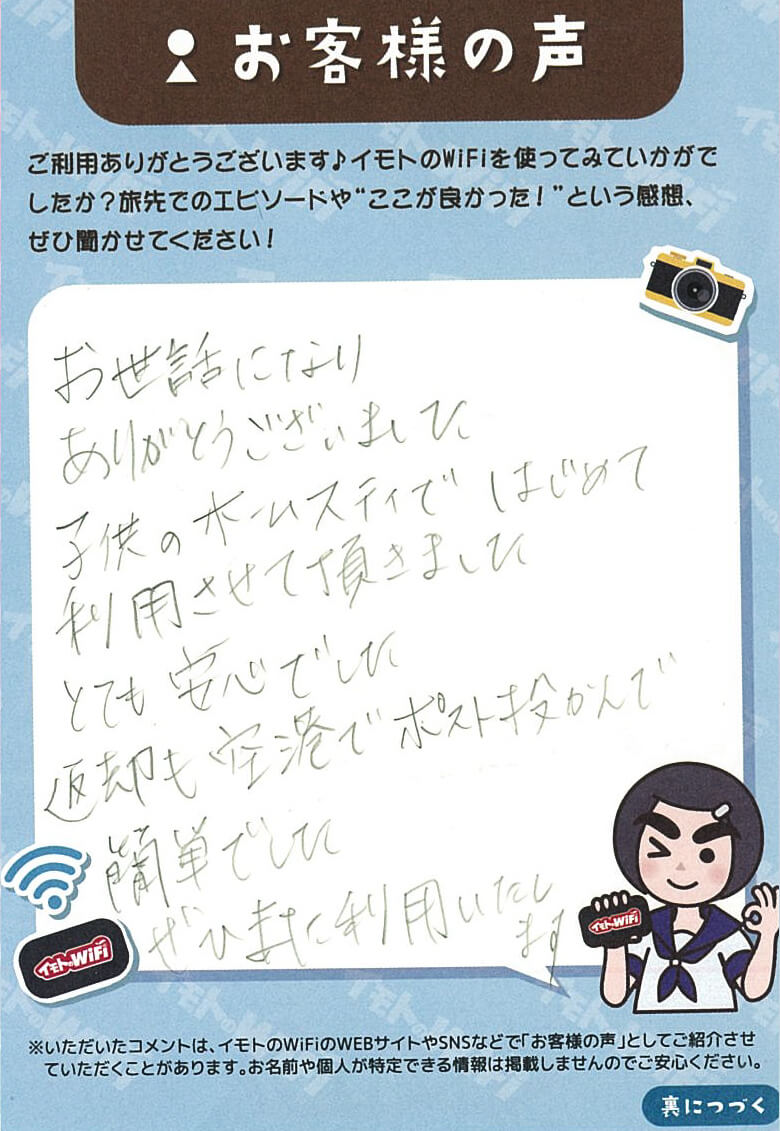 お客様の声
ご利用ありがとうございます♪イモトのWiFiを使ってみていかがで
したか?旅先でのエピソードや“ここが良かった!”という感想、
ぜひ聞かせてください!
お世話になり
ありがとうございました
子供のホームスティで はじめて
利用させて頂きました
とても安心でした
返却も空港でポスト投かんで
簡単でした
ぜひまたに利用いたし
ます
イモトのWiFi
イモトのWiFi
※いただいたコメントは、イモトのWiFiのWEBサイトやSNSなどで「お客様の声」としてご紹介させ
ていただくことがあります。お名前や個人が特定できる情報は掲載しませんのでご安心ください。
裏につづく